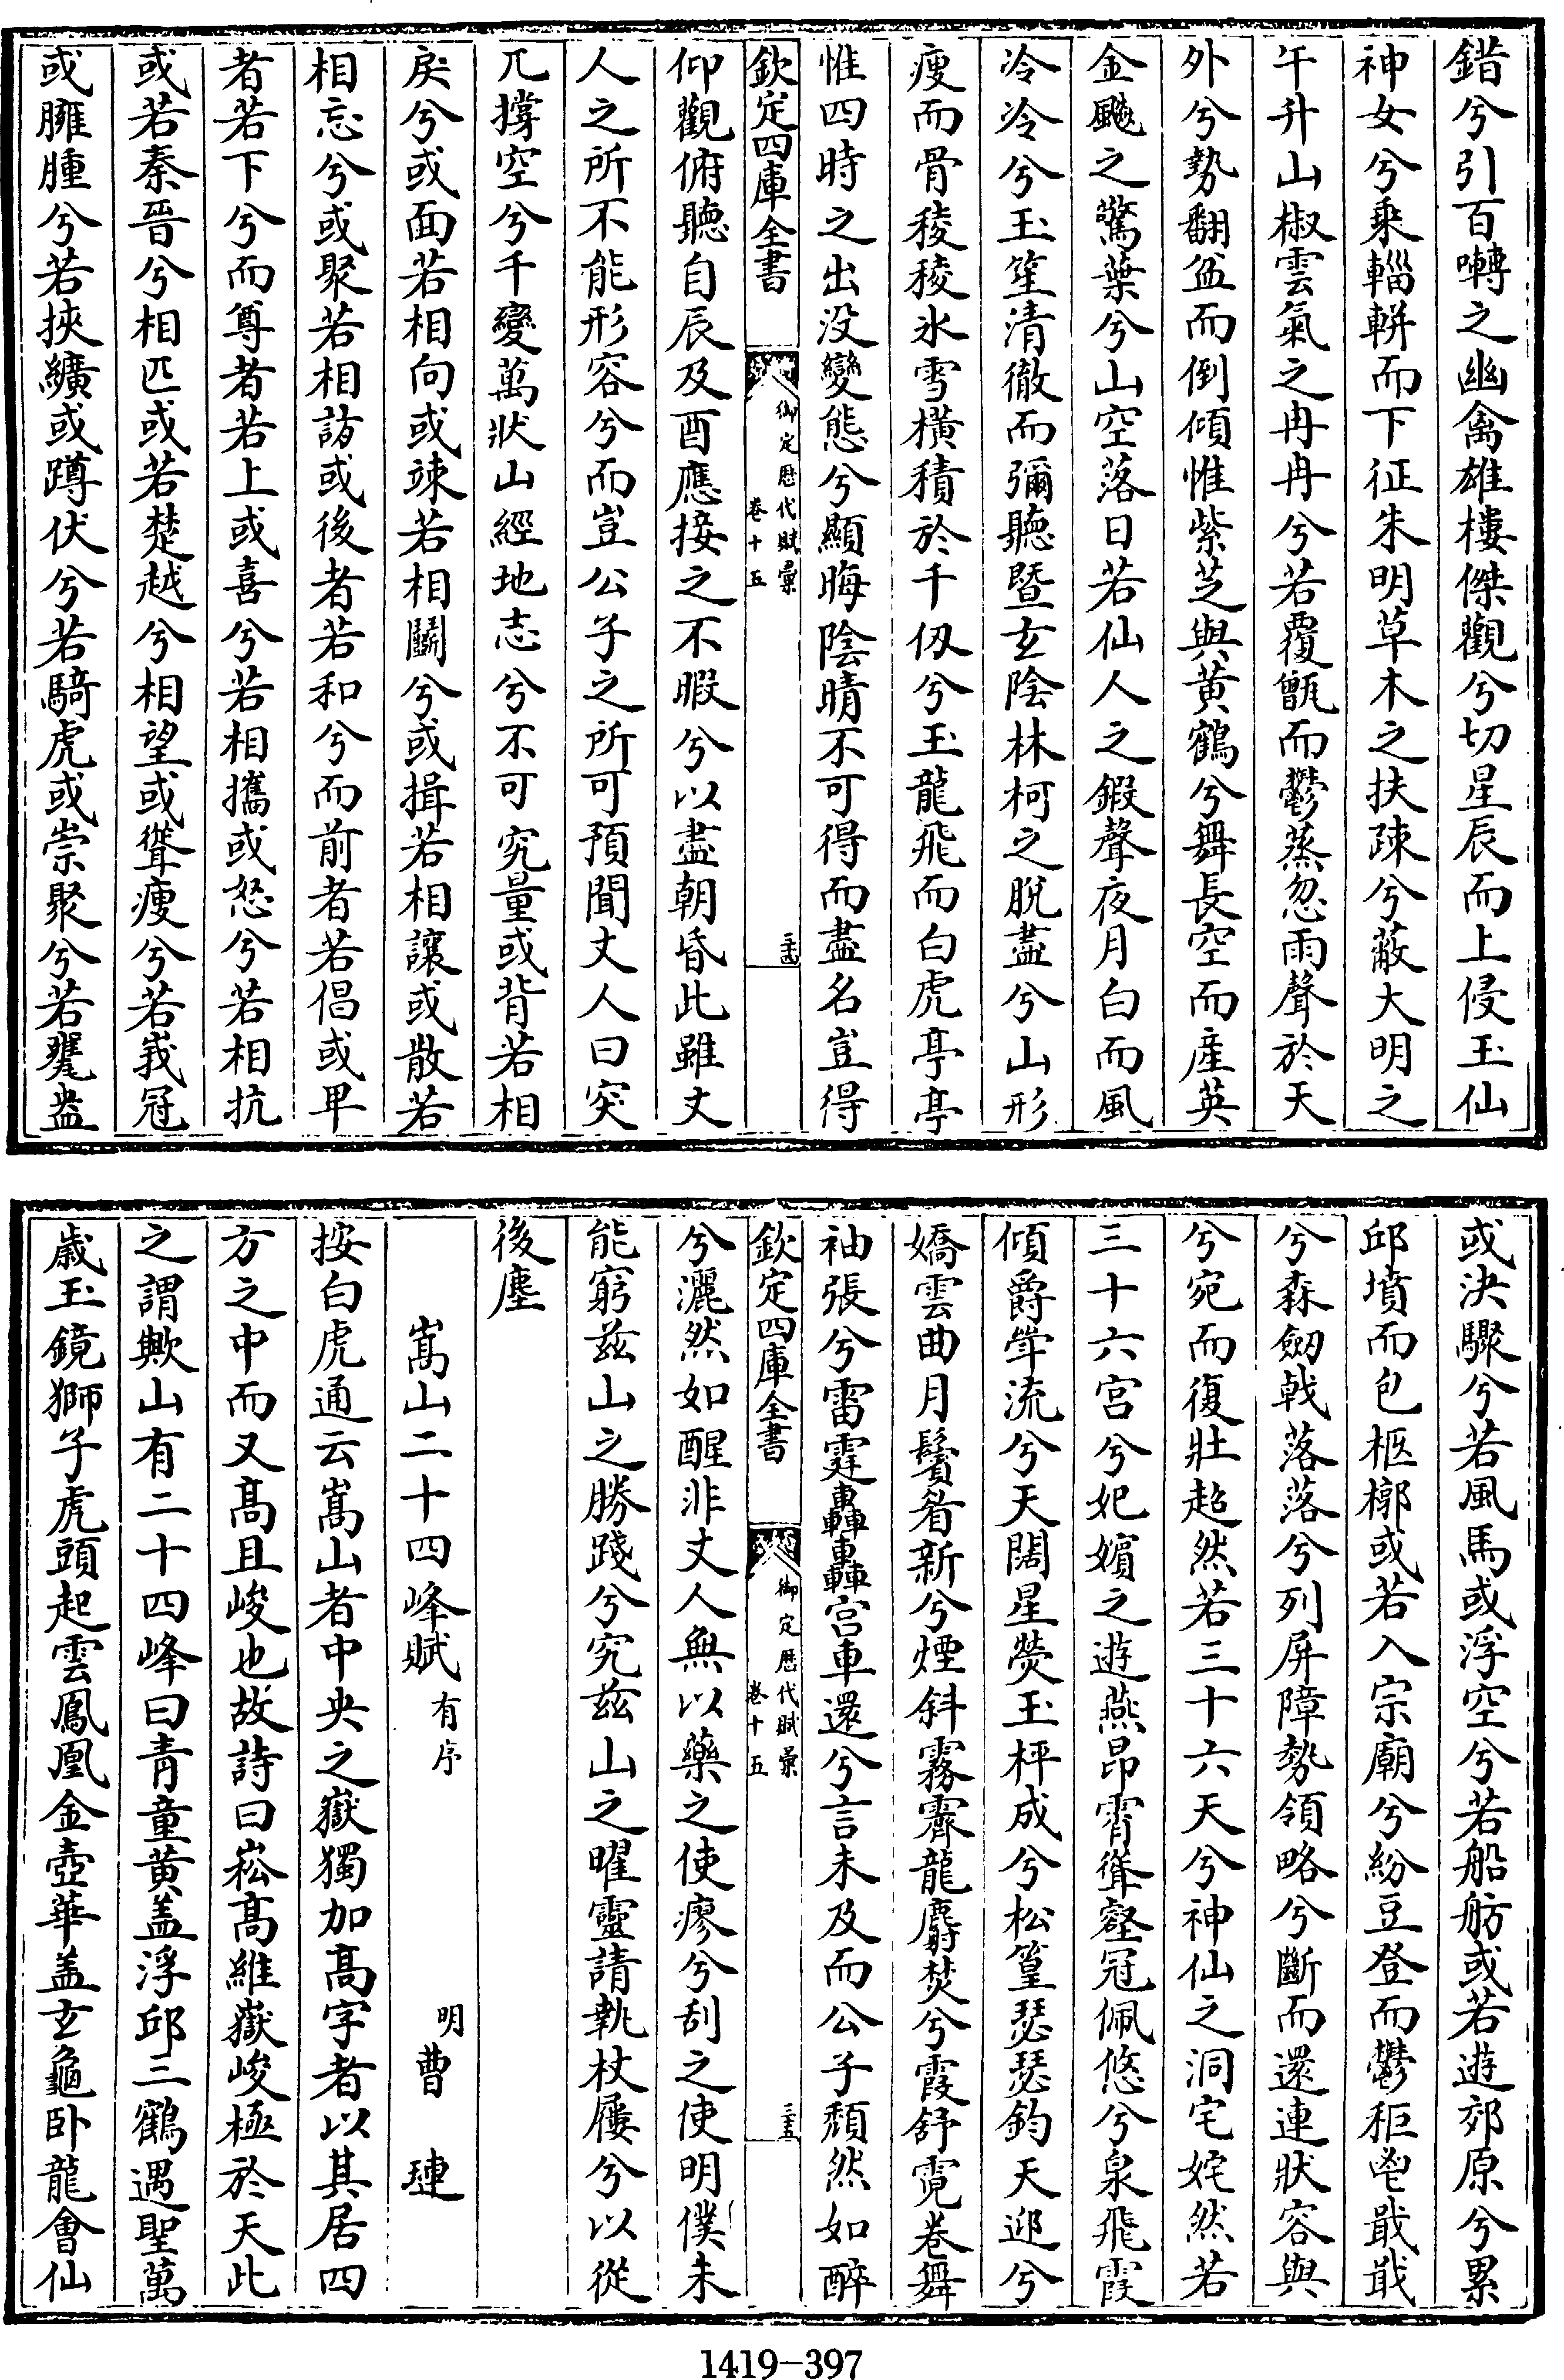 錯兮引百囀之幽禽雄樓傑觀兮切星辰而上侵玉仙
神女兮乘輜軿而下征朱明草木之扶疎兮蔽大明之
午升山椒雲氣之冉冉兮若覆甑而鬱蒸忽雨聲於天
外兮勢翻盆而倒傾惟紫芝與黄鶴兮舞長空而産英
金飈之驚葉兮山空落日若仙人之鍛聲夜月白而風
泠泠兮玉笙清徹而彌聽暨玄陰林柯之脱盡兮山形
瘦而骨稜稜氷雪橫積於千仭兮玉龍飛而白虎亭亭
惟四時之出没變態兮顯晦陰晴不可得而盡名豈得
欽定四庫全書
御定歴代賦彙
卷十五
三十四
仰觀俯聽自辰及酉應接之不暇兮以盡朝昏此雖丈
人之所不能形容兮而豈公子之所可預聞丈人曰突
兀撐空兮千變萬狀山經地志兮不可究量或背若相
戾兮或面若相向或竦若相鬭兮或揖若相讓或散若
相忘兮或聚若相諮或後者若和兮而前者若倡或早
者若下兮而尊者若上或喜兮若相攜或怒兮若相抗
或若秦晉兮相匹或若楚越兮相望或聳瘦兮若峩冠
或臃腫兮若挾纊或蹲伏兮若騎虎或崇聚兮若甕盎
或決驟兮若風馬或浮空兮若船舫或若遊郊原兮累
邱墳而包柩槨或若入宗廟兮紛豆登而鬱秬鬯戢戢
兮森劒戟落落兮列屏障勢領略兮斷而還連狀容與
兮宛而復壯超然若三十六天兮神仙之洞宅姹然若
三十六宮兮妃嬪之遊燕昂霄聳壑冠佩悠兮泉飛霞
傾爵斝流兮天闊星熒玉枰成兮松篁瑟瑟鈞天迎兮
嬌雲曲月鬟眉新兮煙斜霧霽龍麝焚兮霞舒霓卷舞
袖張兮雷霆轟轟宫車還兮言未及而公子頹然如醉
欽定四庫全書
御定歴代賦彙
卷十五
三十五
兮灑然如醒非丈人無以藥之使瘳兮刮之使明僕未
能窮兹山之勝踐兮究兹山之曜靈請執杖屨兮以從
後塵
嵩山二十四峰賦有序 明曹璉
按白虎通云嵩山者中央之嶽獨加高字者以其居四
方之中而又高且峻也故詩曰崧高維嶽峻極於天此
之謂歟山有二十四峰曰青童黄盖浮邱三鶴遇聖萬
歲玉鏡獅子虎頭起雲鳳凰金壺華盖玄龜卧龍會仙
1419-397